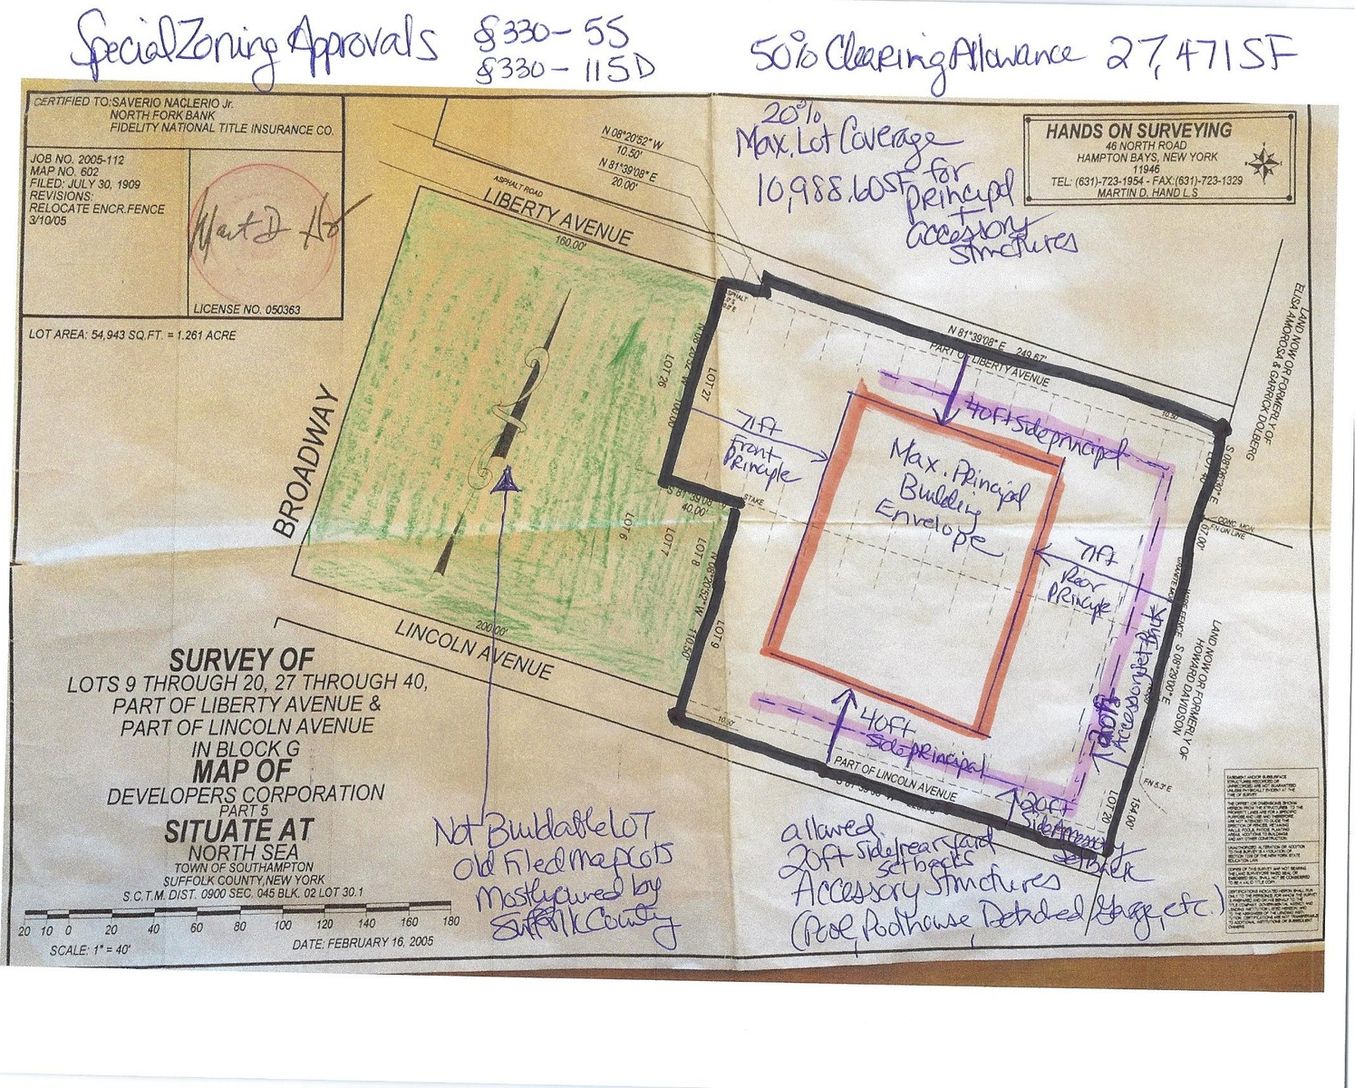 Special Zoning Approvals
§330-55
§330-115D
50% Clearing Allowance 27,471 SF
CERTIFIED TO: SAVERIO NACLERIO Jr.
NORTH FORK BANK
FIDELITY NATIONAL TITLE INSURANCE CO.
JOB NO. 2005-112
MAP NO. 602
FILED: JULY 30, 1909
REVISIONS:
RELOCATE ENCR.FENCE
3/10/05
LICENSE NO. 050363
LOT AREA: 54,943 SQ.FT. = 1.261 ACRE
20%
Max. Lot Coverage
10,988.60SF for
principal
+
accessory
structures
HANDS ON SURVEYING
46 NORTH ROAD
HAMPTON BAYS, NEW YORK
11946
TEL: (631)-723-1954 - FAX:(631)-723-1329
MARTIN D. HAND L.S
N 08°20'52" W
10.50'
N 81°39'08" E
20.00'
ASPHALT ROAD
LIBERTY AVENUE
160.00'
BROADWAY
LINCOLN AVENUE
200.00'
LOT 28
LOT 27
100.00'
LOT 6
LOT 7
LOT 8
LOT 9
N 08°20'52" W 110.50'
S 81°39'08"
40.00'
STAKE
N 81°39'08" E 249.67'
PART OF LIBERTY AVENUE
10.50'
LAND NOW OR FORMERLY OF
ELISA AMOROSA & GARRICK DOLBERG
40ft Side principal
71ft
Front
Principle
Max. Principal
Building
Envelope
71ft
Rear
Principle
CONC. MON
67.00'
S 08°29'00" E
LAND NOW OR FORMERLY OF
HOWARD DAVIDSON
20ft
Accessory Setback
40ft
Side principal
10.50'
PART OF LINCOLN AVENUE
LOT 20
154.00'
20ft
Side Accessory
Setback
SURVEY OF
LOTS 9 THROUGH 20, 27 THROUGH 40,
PART OF LIBERTY AVENUE &
PART OF LINCOLN AVENUE
IN BLOCK G
MAP OF
DEVELOPERS CORPORATION
PART 5
SITUATE AT
NORTH SEA
TOWN OF SOUTHAMPTON
SUFFOLK COUNTY, NEW YORK
S.C.T.M. DIST. 0900 SEC. 045 BLK. 02 LOT 30.1
20 10 0 20 40 60 80 100 120 140 160 180
SCALE: 1" = 40'
DATE: FEBRUARY 16, 2005
Not Buildable LOT
old Filed Map Lots
Mostly owned by
Suffolk County
allowed
20ft Side/rear yard
setbacks
Accessory Structures
(Pool, Poolhouse, Detached/Garage, etc.)